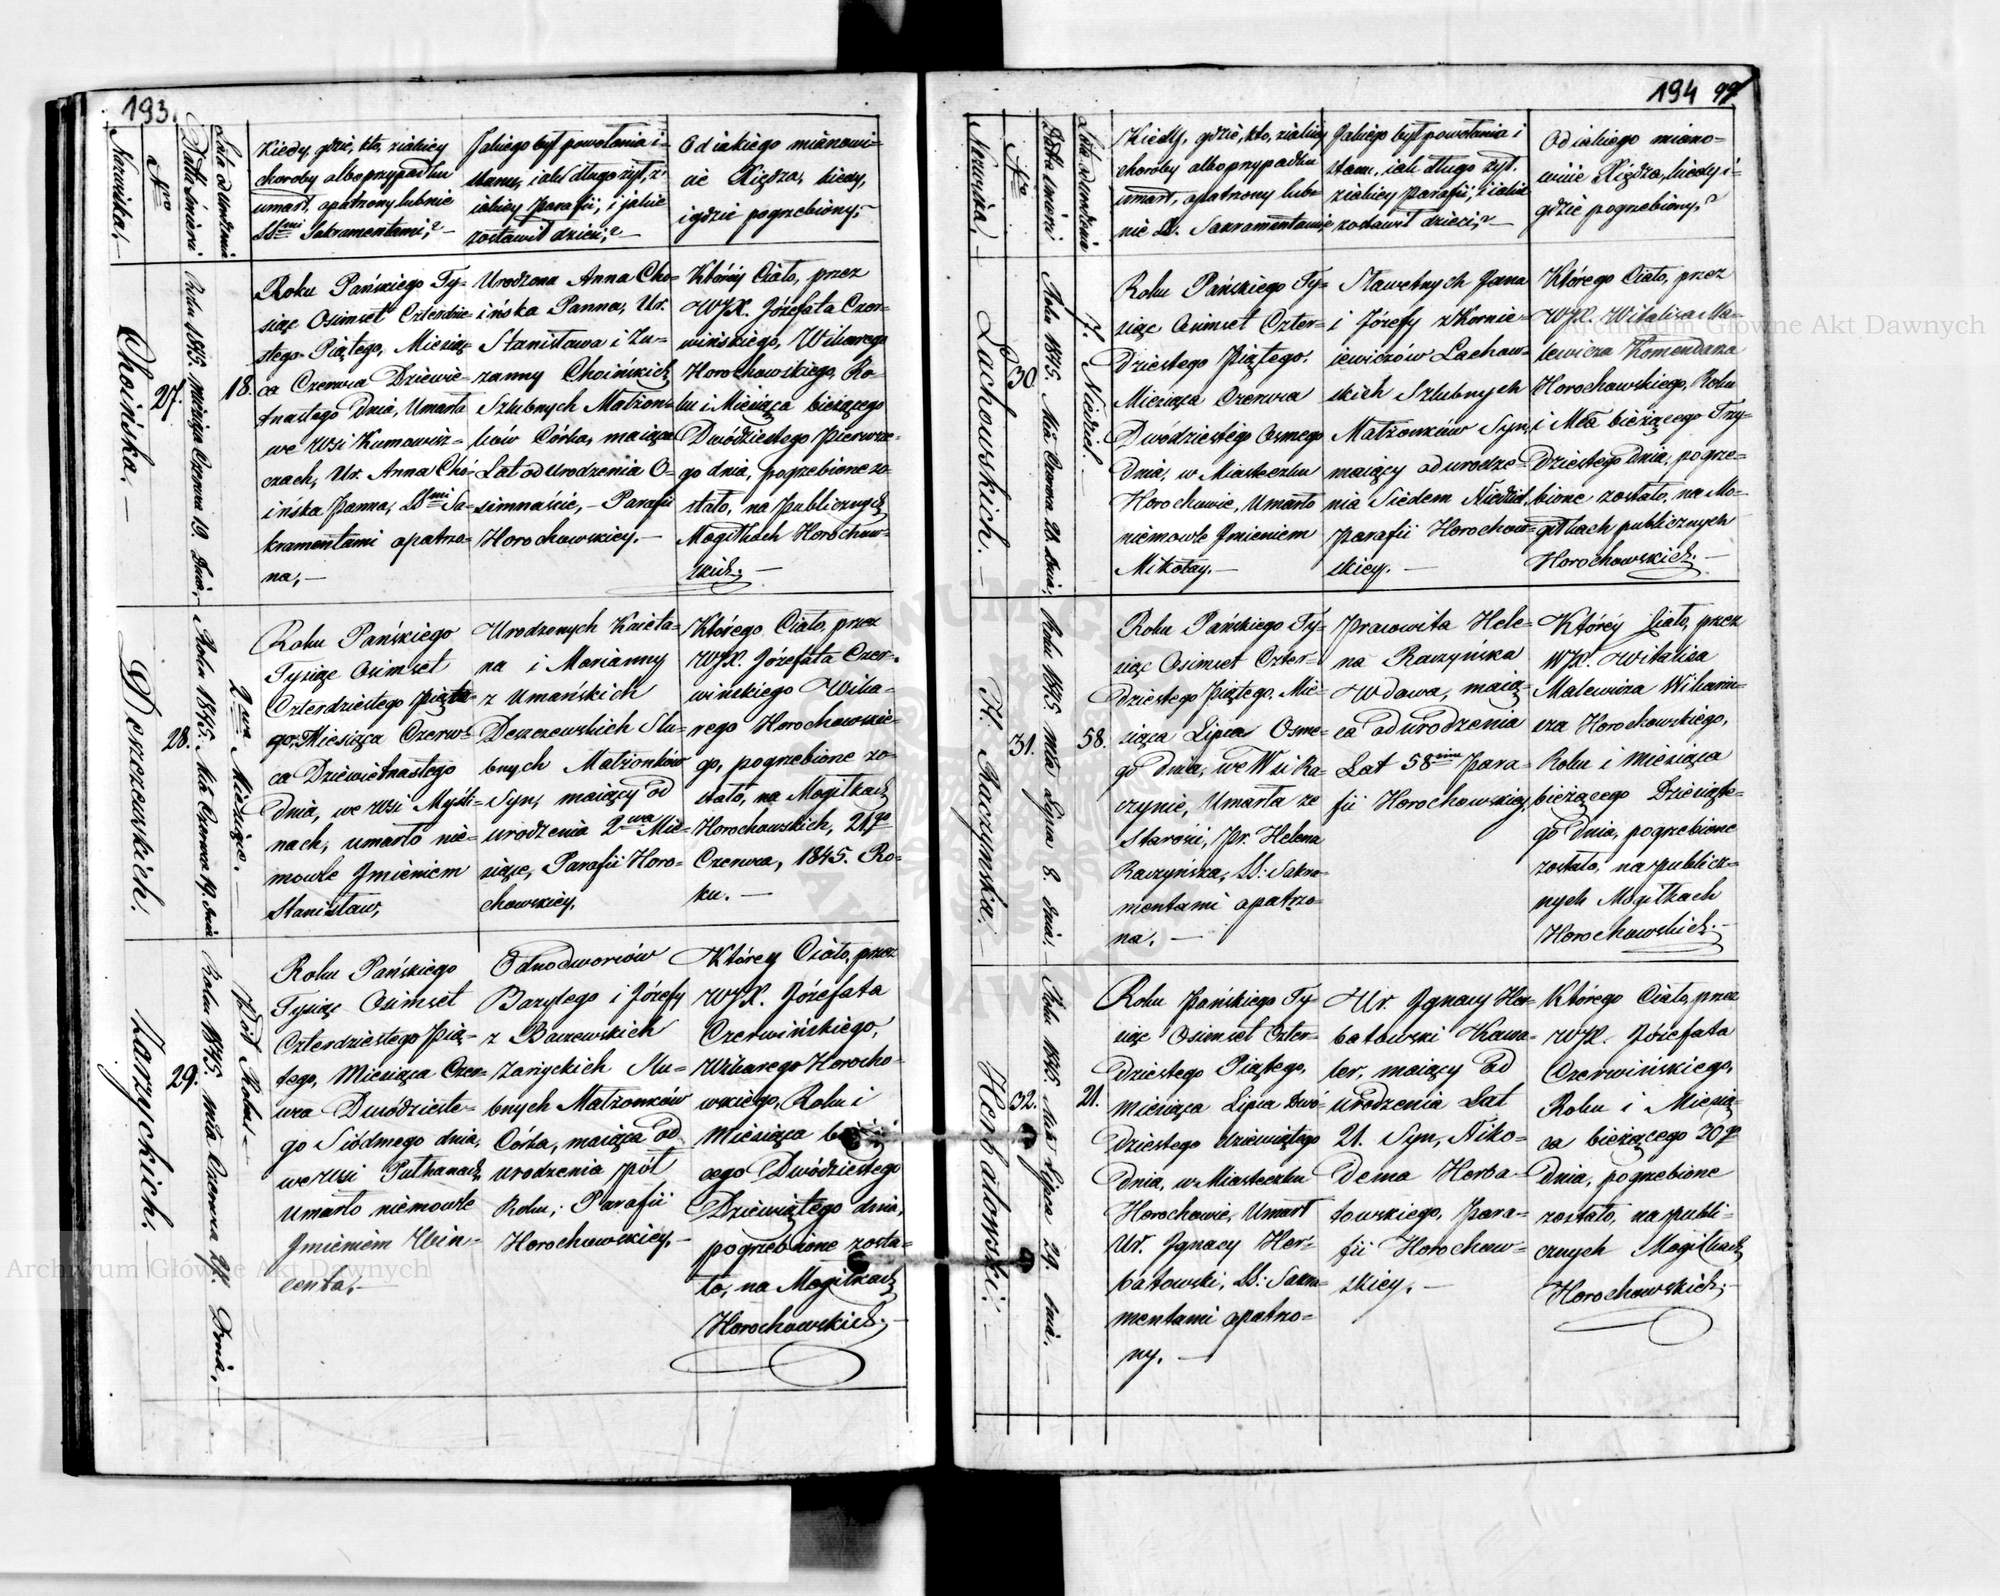 193.
Nazwiska. —
Nro
Datta śmierci
Lata od urodzenia
Kiedy, gdzie, kto, z iakiey
choroby albo przypadku
umarł, opatrzony lub nie
SSmi Sakramentami;? —
Jakiego był powołania i
stanu, i jak długo żył, z
iakiey Parafii, i jakie
zostawił dzieci;? —
Od iakiego mianowi=
cie Xiędza, kiedy,
i gdzie pogrzebiony; —
Choińska. —
27.
Roku 1845. Miesiąca Czerwca 19. Dnia, —
18.
Roku Pańskiego Ty=
siąc Osimset Czterdzie=
stego Piątego, Miesią=
ca Czerwca Dziewie=
tnastego Dnia, Umarła
we Wsi Kumowisz=
czach, Ur. Anna Cho=
ińska Panna, SSmi Sa=
kramentami opatrzo=
na, —
Urodzona Anna Cho=
ińska Panna, Ur.
Stanisława i Zu=
zanny Choińskich
Szlubnych Małżon=
ków Córka, maiąca
Lat od urodzenia O=
simnaście, — Parafii
Horochowskiey. —
Któréy Ciało, przez
WJX. Józefata Czer=
wińskiego, Wikarego
Horochowskiego, Ro=
ku i Miesiąca bieżącego
Dwódziestego pierwsze=
go dnia, pogrzebione zo=
stało, na Publicznych
Mogiłkach Horochow=
skich. —
Deszczowskich.
28.
Roku 1845. Mca Czerwca 19. dnia
2wa Miesiące. —
Roku Pańskiego
Tysiąc Osimset
Czterdziestego Piąte=
go; Miesiąca Czerw=
ca Dziewietnastego
Dnia, we Wsi Myśli=
nach, umarło nie=
mowle Jmieniem
Stanisław,
Urodzonych Kaieta=
na i Marianny
z Umańskich
Deszczowskich Szlu=
bnych Małżonków
Syn, maiący od
urodzenia 2wa Mie=
siące, Parafii Horo=
chowskiey,
Którego Ciało, przez
WJX. Józefata Czer=
wińskiego Wika=
rego Horochowskie=
go, pogrzebione zo=
stało, na Mogiłkach
Horochowskich, 21go
Czerwca, 1845. Ro=
ku. —
Zarzyckich.
29.
Roku 1845. Mca Czerwca 27. Dnia, —
Pół Roku —
Roku Pańskiego
Tysiąc Osimset
Czterdziestego Pią=
tego, Miesiąca Czer=
wca Dwódzieste=
go Siódmego dnia,
we Wsi
Umarło niemowle
Jmieniem Win=
centa, —
Odnodworców
Bazylego i Józefy
z
Zarzyckich Szlu=
bnych Małżonków
Córka, maiąca od
urodzenia pół
Roku; Parafii
Horochowskiey, —
Którey Ciało, przez
WJX. Józefata
Czerwińskiego,
Wikarego Horocho=
wskiego, Roku i
Miesiąca
cego Dwódziestego
Dziewiątego dnia,
pogrzebione zosta=
ło, na Mogiłkach
Horochowskich; —
194 97
Nazwiska. —
Nro
Datta śmierci
Lata od urodzenia
Kiedy, gdzie, kto, z iakiey
choroby albo przypadku
umarł, opatrzony lub=
nie SS. Sakramentami;
Jakiego był powołania i
stanu, i jak długo żył,
z iakiey Parafii, i iakie
zostawił dzieci;? —
Od iakiego miano=
wicie Xiędza, kiedy i
gdzie pogrzebiony;?
Lachowskich. —
30.
Roku 1845. Mca Czerwca 28. dnia,
7. Niedziel.
Roku Pańskiego Ty=
siąc Osimset Czter=
dziestego Piątego,
Miesiąca Czerwca
Dwódziestego Osmego
Dnia, w Miasteczku
Horochowie, Umarło
niemowle Jmieniem
Mikołay. —
Sławetnych Jana
i Józefy z Kornie=
iewiczów Lachow=
skich Szlubnych
Małżonków Syn,
maiący od urodze=
nia Siedem Niedziel,
Parafii Horochow=
skiey. —
Którego Ciało, przez
WJX. Witalisa Ma=
lewicza Komendarza
Horochowskiego, Roku
i Mca bieżącego Trzy=
dziestego dnia, pogrze=
bione zostało, na Mo=
giłkach publicznych
Horochowskich. —
H. Raczyńska. —
31.
Roku 1845. Mca Lipca 8. dnia. —
58.
Roku Pańskiego Ty=
siąc Osimset Czter=
dziestego Piątego, Mie=
siąca Lipca Osme=
go Dnia, we Wsi Ra=
czynie, Umarła ze
starości, Pr. Helena
Raczyńska, SS: Sakra=
mentami opatrzo=
na. —
Pracowita Hele=
na Raczyńska
Wdowa, maią=
ca od urodzenia
Lat 58sim Para=
fii Horochowskiey,
Któréy Ciało, przez
WJX. Witalisa
Malewicza Wikariu=
sza Horochowskiego,
Roku i Miesiąca
bieżącego Dziesiąte=
go Dnia, pogrzebione
zostało, na publicz=
nych Mogiłkach
Horochowskich. —
Herbatowski. —
32.
Roku 1845. Mca Lipca 29. dnia. —
21.
Roku Pańskiego Ty=
siąc Osimset Czter=
dziestego Piątego,
Miesiąca Lipca Dwó=
dziestego dziewiątego
Dnia, w Miasteczku
Horochowie, Umarł
Ur. Jgnacy Her=
batowski, SS: Sakra=
mentami opatrzo=
ny. —
Ur. Jgnacy Her=
batowski Kawa=
ler, maiący od
urodzenia Lat
21. Syn, Niko=
dema Herba=
towskiego, Para=
fii Horochow=
skiey. —
Którego Ciało, przez
WJX. Józefata
Czerwińskiego,
Roku i Miesią=
ca bieżącego 30go
Dnia, pogrzebione
zostało, na publi=
cznych Mogiłkach
Horochowskich; —
Archiwum Główne Akt Dawnych
Archiwum Główne Akt Dawnych